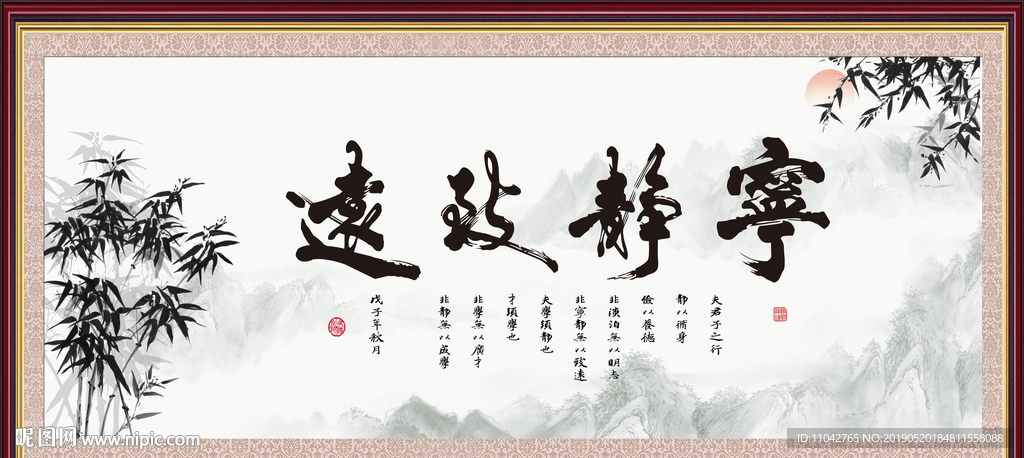 寧靜致遠
夫君子之行
靜以脩身
儉以養德
非淡泊無以明志
非寧靜無以致遠
夫學須靜也
才須學也
非學無以廣才
非靜無以成學
戊子年秋月
昵图网 www.nipic.com
ID:11042765 NO:20190520184811558088